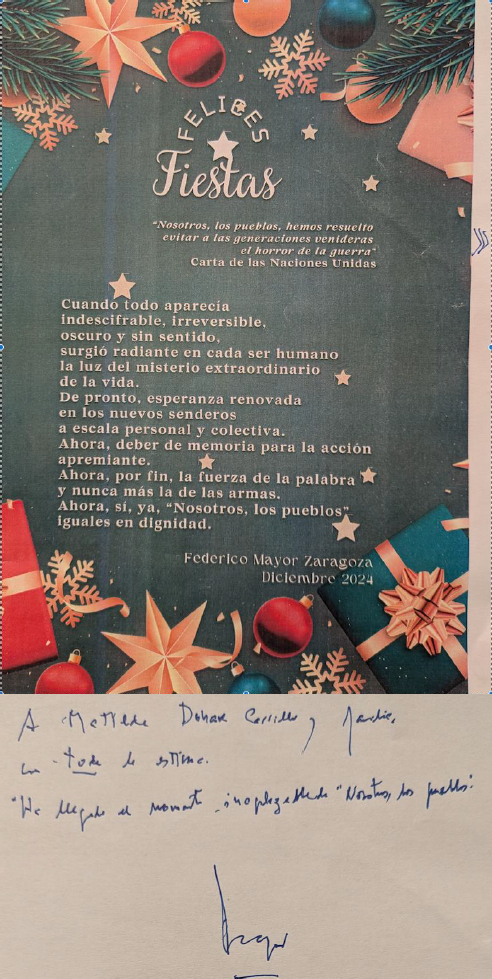 FELICES
Fiestas
"Nosotros, los pueblos, hemos resuelto
evitar a las generaciones venideras
el horror de la guerra"
Carta de las Naciones Unidas
Cuando todo aparecía
indescifrable, irreversible,
oscuro y sin sentido,
surgió radiante en cada ser humano
la luz del misterio extraordinario
de la vida.
De pronto, esperanza renovada
en los nuevos senderos
a escala personal y colectiva.
Ahora, deber de memoria para la acción
apremiante.
Ahora, por fin, la fuerza de la palabra
y nunca más la de las armas.
Ahora, sí, ya, "Nosotros, los pueblos"
iguales en dignidad.
Federico Mayor Zaragoza
Diciembre 2024
A Matilde
con toda la estima.
"Ha llegado el momento inaplazable de "Nosotros, los pueblos".